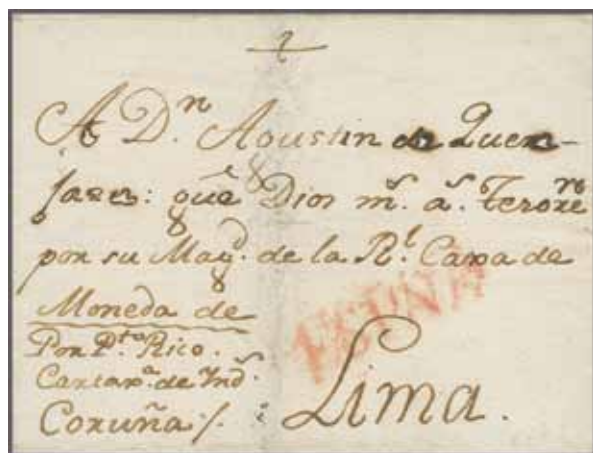 A Dn. Agustin de Quen-
gue Dios ms. as. Terore
por su Magd. de la Rl. Caxa de
Moneda de
Por Pto. Rico.
Cartaxa. de Ynds.
Coruña /. Lima.